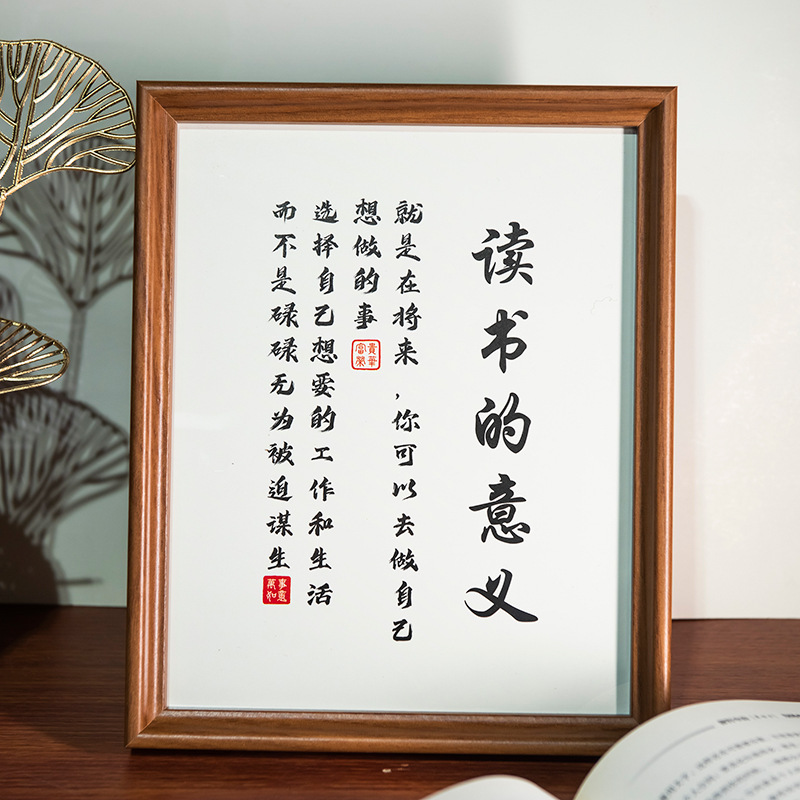 读书的意义
就是在将来，你可以去做自己
想做的事
富貴
榮華
选择自己想要的工作和生活
而不是碌碌无为被迫谋生
萬事
如意